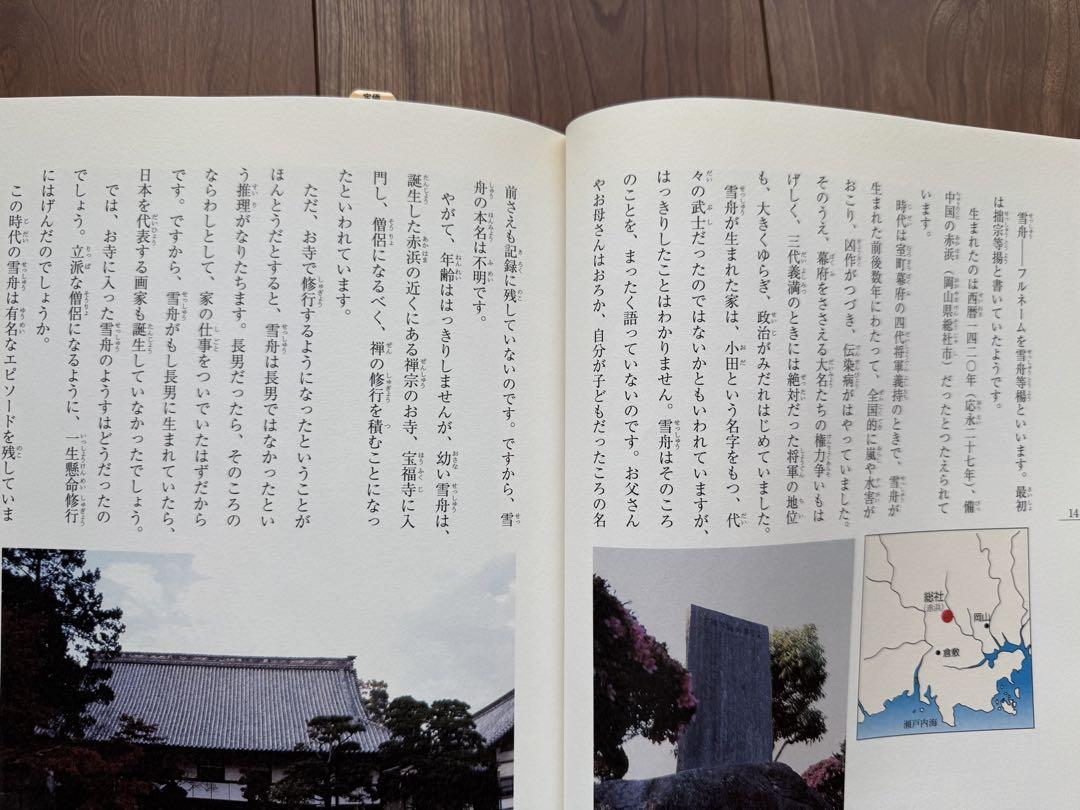 雪舟――フルネームを雪舟等楊といいます。最初
は拙宗等揚と書いていたようです。
生まれたのは西暦一四二〇年(応永二十七年)、備
中国の赤浜(岡山県総社市)だったとつたえられて
います。
時代は室町幕府の四代将軍義持のときで、雪舟が
生まれた前後数年にわたって、全国的に嵐や水害が
おこり、凶作がつづき、伝染病がはやっていました。
そのうえ、幕府をささえる大名たちの権力争いもは
げしく、三代義満のときには絶対だった将軍の地位
も、大きくゆらぎ、政治がみだれはじめていました。
雪舟が生まれた家は、小田という名字をもつ、代
々の武士だったのではないかともいわれていますが、
はっきりしたことはわかりません。雪舟はそのころ
のことを、まったく語っていないのです。お父さん
やお母さんはおろか、自分が子どもだったころの名
前さえも記録に残していないのです。ですから、雪
舟の本名は不明です。
やがて、年齢ははっきりしませんが、幼い雪舟は、
誕生した赤浜の近くにある禅宗のお寺、宝福寺に入
門し、僧侶になるべく、禅の修行を積むことになっ
たといわれています。
ただ、お寺で修行するようになったということが
ほんとうだとすると、雪舟は長男ではなかったとい
う推理がなりたちます。長男だったら、そのころの
ならわしとして、家の仕事をついでいたはずだから
です。ですから、雪舟がもし長男に生まれていたら、
日本を代表する画家も誕生していなかったでしょう。
では、お寺に入った雪舟のようすはどうだったの
でしょう。立派な僧侶になるように、一生懸命修行
にはげんだのでしょうか。
この時代の雪舟は有名なエピソードを残していま
14
総社
(赤浜)
岡山
倉敷
瀬戸内海